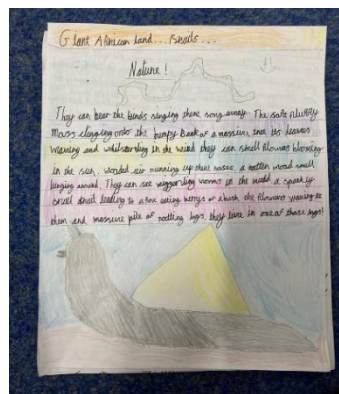 Giant African land... snails...
Nature!
They can hear the birds singing there song away. The soft fluffy
moss clinging onto the bumpy Bark of a massive tree its leaves
waving and whilsteling in the wind they can smell flowers blowing
in the sun, wooded air running up there noses a rotten wood smell
linging around. They can see wiggerling worms in the mudd a sparkly
snail trail leading to a fox eating berrys of a bush the flowers waving to
them and massive pile of rotting logs, they live in one of those logs!